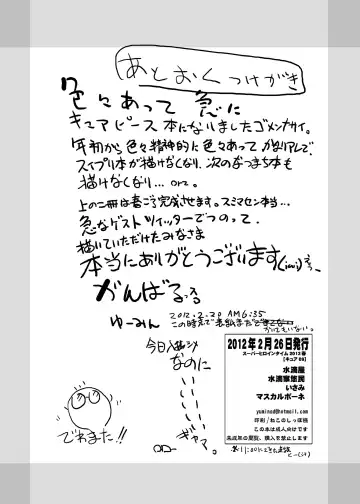 あとおくつけがき
色々あって 急に
キュアピース本になりましたゴメンナサイ。
年初から色々精神的に色々あって かなりアレで、
スイプリ本が描けなくなり、次のなつまち本も
描けなくなり…orz。
上の二冊は春ごろ完成させます。スミマセン本当…
急なゲストツイッターでつのって、
描いていただけたみなさま
本当にありがとうございます
がんばるっ
ゆーみん
2012.2.20 AM6:35
この時点で表紙まだ
かいてもいない。
今日入稿
なのに
ギャア。
でわまた!!
2012年2月26日発行
スーパーヒロインタイム2012春
【キュア06】
水滴屋
水滴家悠民
いさみ
マスカルポーネ
yuminad@hotmail.com
印刷/ねこのしっぽ様
この本は成人向けです
未成年の閲覧、購入を禁止します